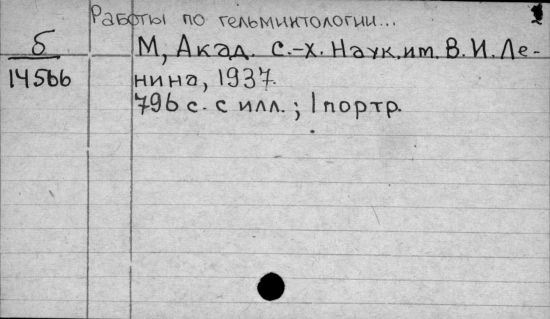 Работы по гельминтологии...
б
М, Акад. С.-х. Наук.им. В. И. Ле-
14566
нина, 1937.
796 с. с илл. ; 1 портр.